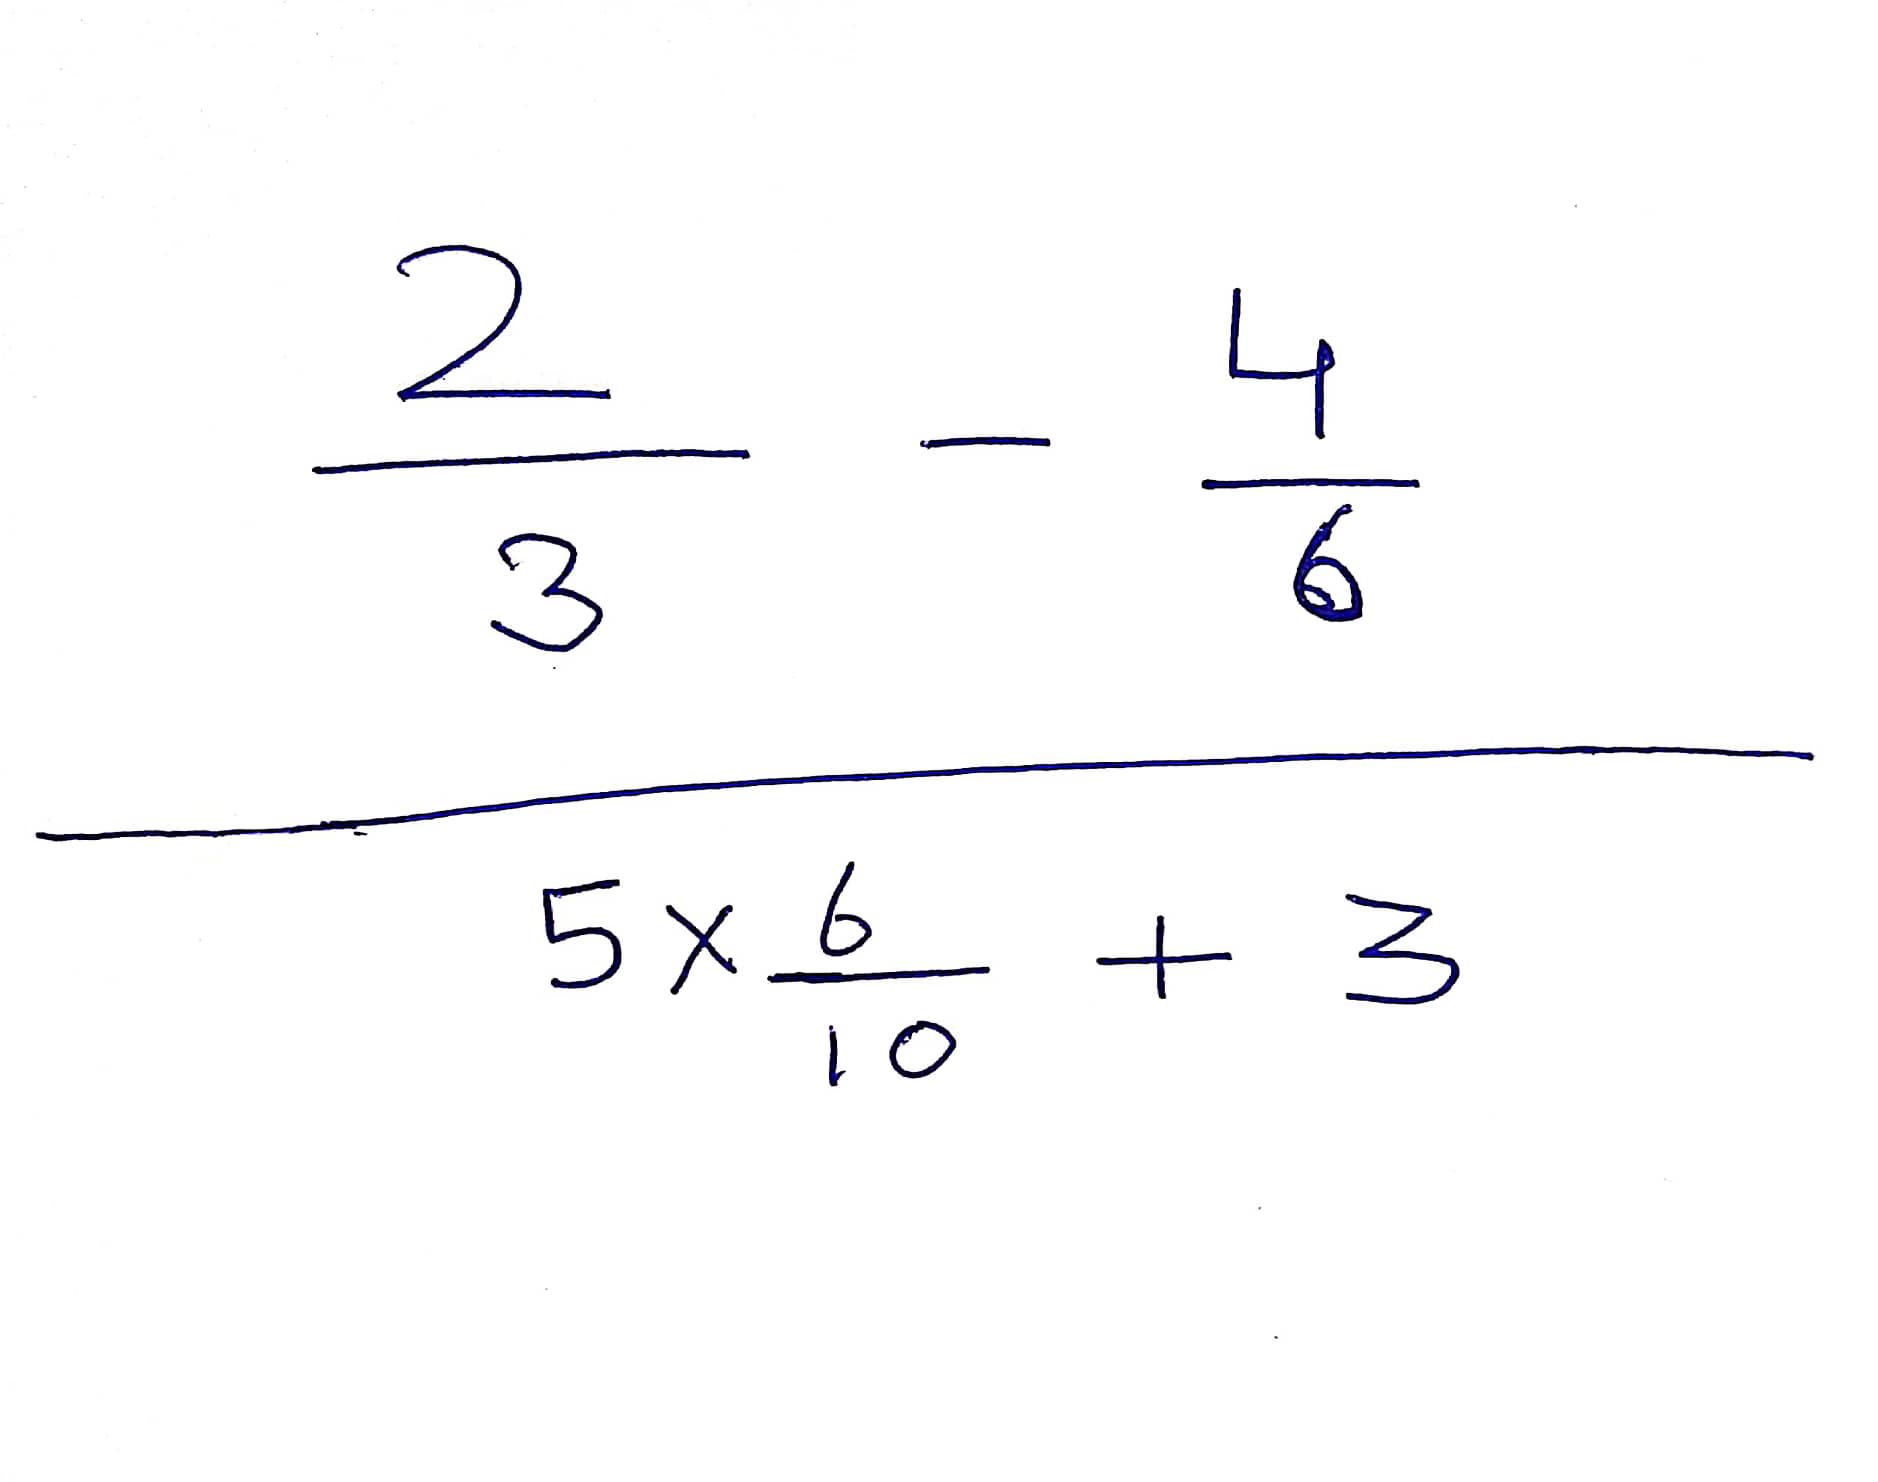 2/3 - 4/6
5 × 6/10 + 3